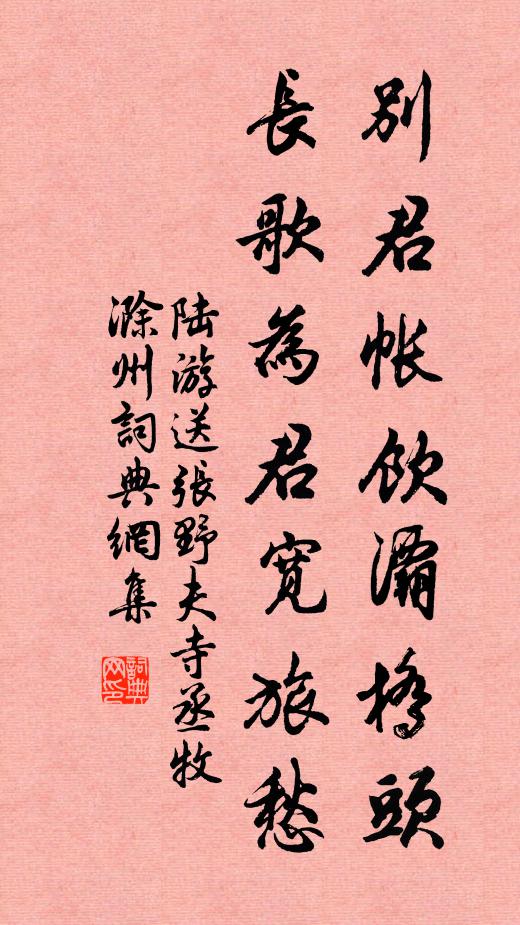 別君帳飲灞橋頭
長歌為君寬旅愁
陆游送張野夫寺丞牧
滁州詞典網集
詞典網印